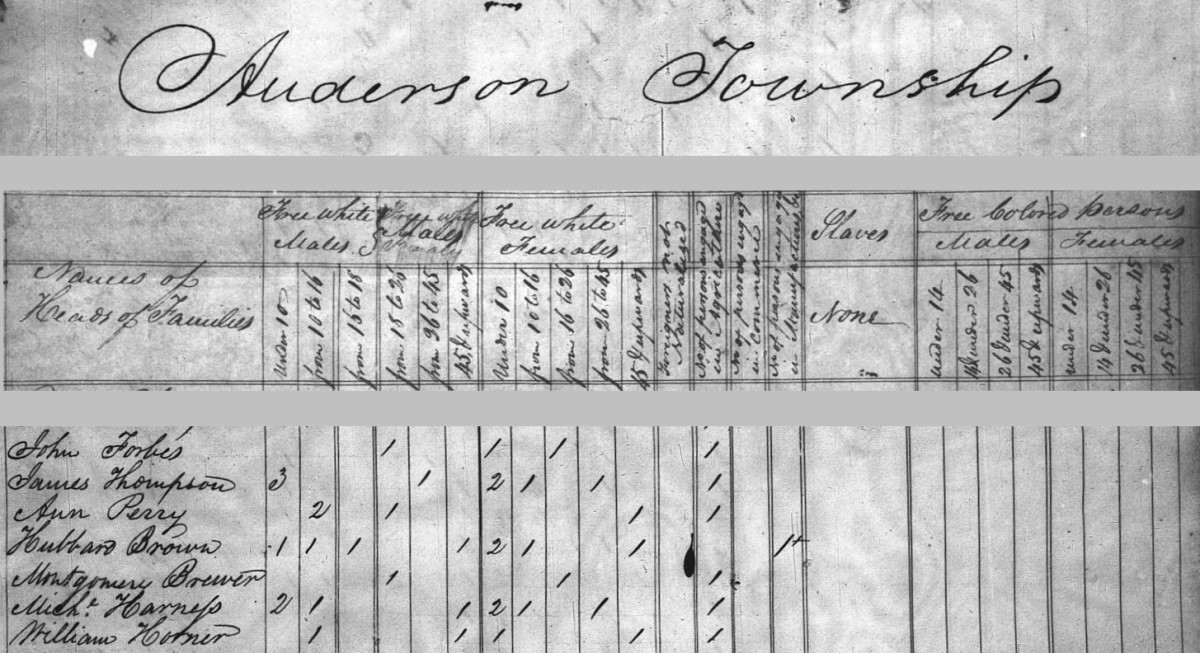 Anderson Township
Names of Heads of Families
Free white Males
Free white Males
Free white Females
Foreigners not Naturalized
No of persons engaged in Agriculture
No of persons engaged in Commerce
No of persons engaged in Manufactures
Slaves
Free Colored Persons
Males Females
under 10 from 10 to 16 from 16 to 18 from 18 to 26 from 26 to 45 45 & upwards under 10 from 10 to 16 from 16 to 26 from 26 to 45 45 & upwards None under 14 14 & under 26 26 & under 45 45 & upwards under 14 14 & under 26 26 & under 45 45 & upwards
John Forbes 1 1 1 1
James Thompson 3 1 2 1 1 1
Ann Perry 2 1 1 1
Hubbard Brown 1 1 1 1 2 1 1 1
Montgomery Brewer 1 1 1
Michl Harness 2 1 1 2 1 1 1
William Horner 1 1 1 1 1 1